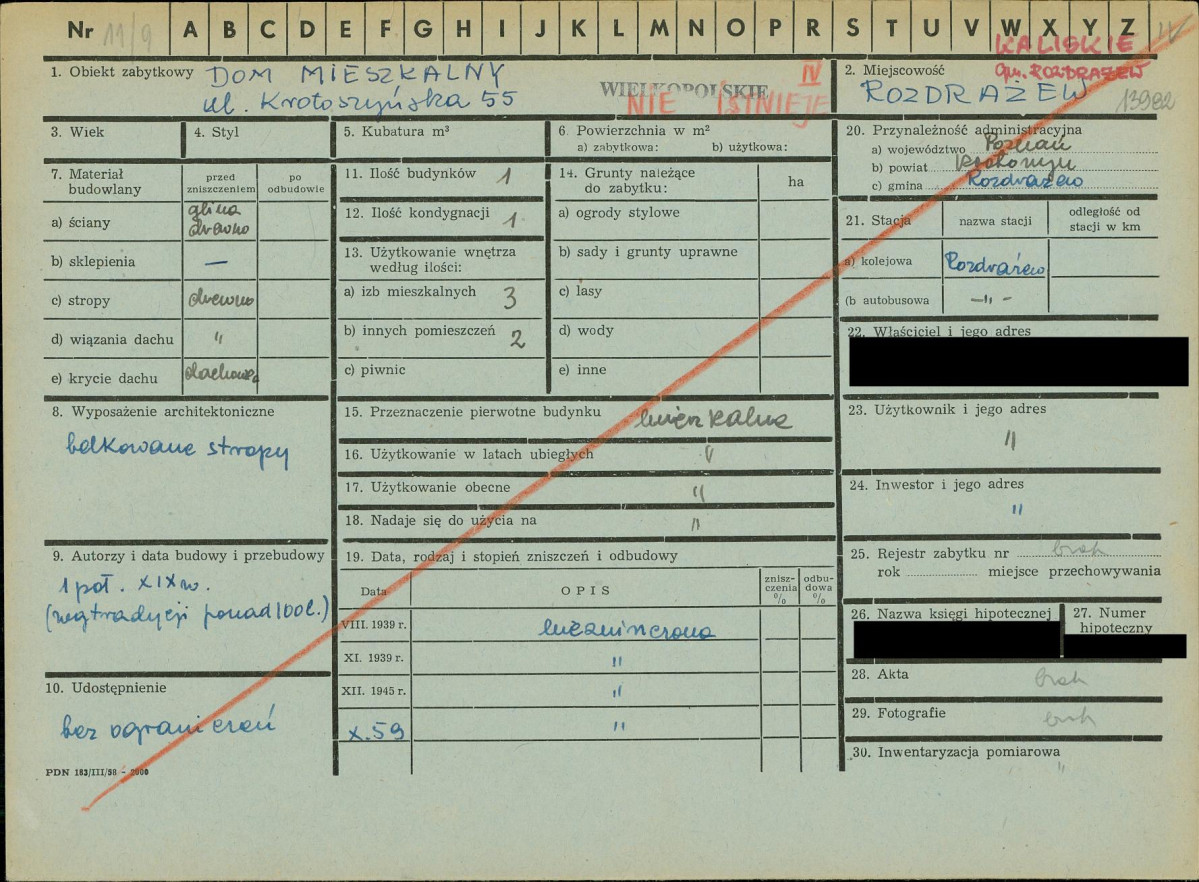 Nr 11/9 A B C D E F G H I J K L M N O P R S T U V W X Y Z IV
KALISKIE
gm. ROZDRAŻEW
1. Obiekt zabytkowy DOM MIESZKALNY
ul. Krotoszyńska 55
WIELKOPOLSKIE IV
NIE ISTNIEJE
2. Miejscowość
ROZDRAŻEW 13982
3. Wiek
4. Styl
5. Kubatura m³
6. Powierzchnia w m²
a) zabytkowa: b) użytkowa:
7. Materiał budowlany
przed zniszczeniem
po odbudowie
a) ściany glina drewno
b) sklepienia —
c) stropy drewno
d) wiązania dachu "
e) krycie dachu dachówka
8. Wyposażenie architektoniczne
belkowane stropy
9. Autorzy i data budowy i przebudowy
1 poł. XIX w.
(wg tradycji ponad 100 l.)
10. Udostępnienie
bez ograniczeń
PDN 183/III/58 - 2000
11. Ilość budynków 1
12. Ilość kondygnacji 1
13. Użytkowanie wnętrza
według ilości:
a) izb mieszkalnych 3
b) innych pomieszczeń 2
c) piwnic
14. Grunty należące
do zabytku:
ha
a) ogrody stylowe
b) sady i grunty uprawne
c) lasy
d) wody
e) inne
15. Przeznaczenie pierwotne budynku mieszkalne
16. Użytkowanie w latach ubiegłych "
17. Użytkowanie obecne "
18. Nadaje się do użycia na "
19. Data, rodzaj i stopień zniszczeń i odbudowy
Data
OPIS
znisz-
czenia
%
odbu-
dowa
%
VIII. 1939 r.
XI. 1939 r. "
XII. 1945 r. "
X.59 "
20. Przynależność administracyjna
a) województwo Poznań
b) powiat Krotoszyn
c) gmina Rozdrażew
21. Stacja
nazwa stacji
odległość od
stacji w km
a) kolejowa Rozdrażew
(b autobusowa —"—
22. Właściciel i jego adres
23. Użytkownik i jego adres
"
24. Inwestor i jego adres
"
25. Rejestr zabytku nr brak
rok miejsce przechowywania
26. Nazwa księgi hipotecznej
27. Numer
hipoteczny
28. Akta brak
29. Fotografie brak
30. Inwentaryzacja pomiarowa
"